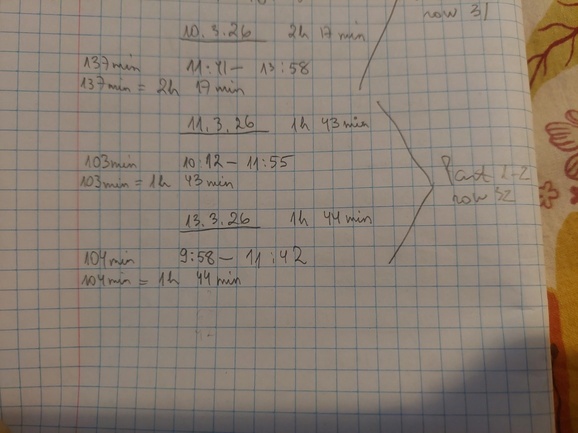 row 31
10.3.26 2h 17 min
137min 11:41 - 13:58
137min = 2h 17 min
11.3.26 1h 43 min
103min 10:12 - 11:55
103min = 1h 43 min
Part 1-2
row 32
13.3.26 1h 44 min
104min 9:58 - 11:42
104min = 1h 44 min